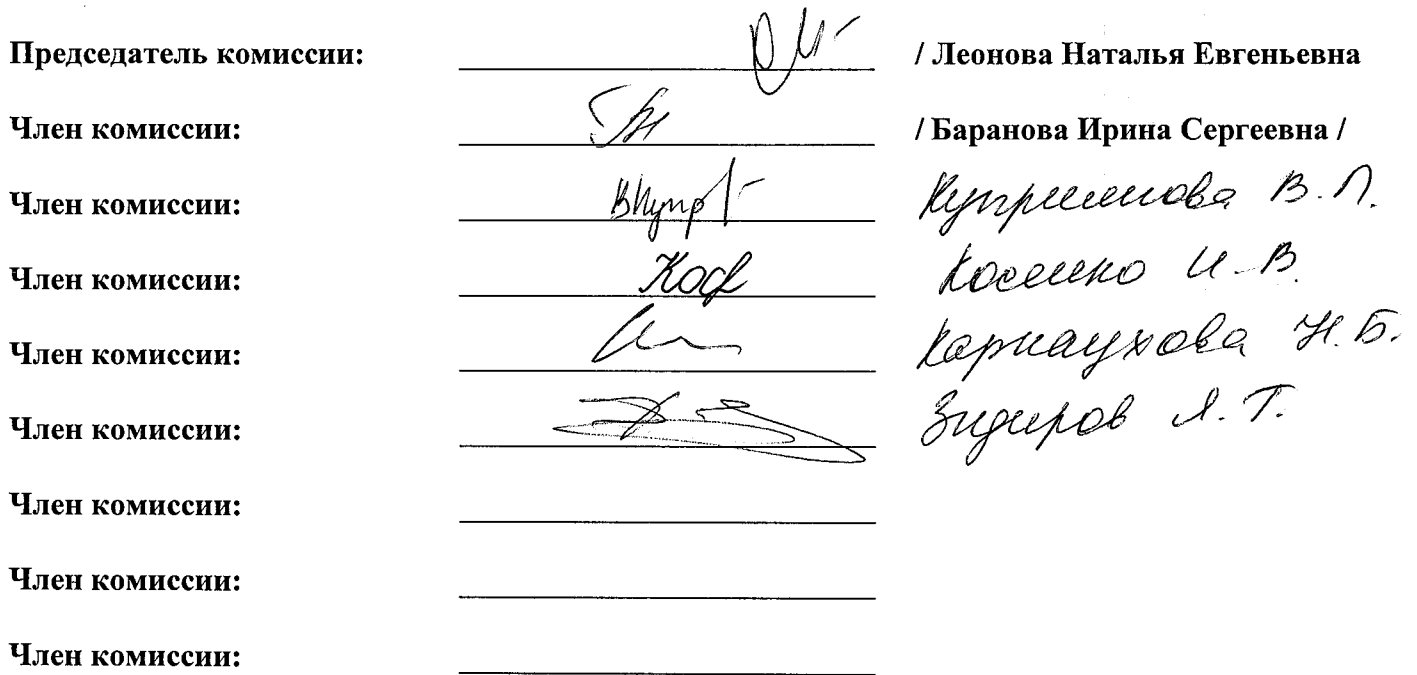 Председатель комиссии: / Леонова Наталья Евгеньевна
Член комиссии: / Баранова Ирина Сергеевна /
Член комиссии: В. П.
Член комиссии: И. В.
Член комиссии: Карнаухова Н. Б.
Член комиссии: Зидиров Я. Т.
Член комиссии:
Член комиссии:
Член комиссии: